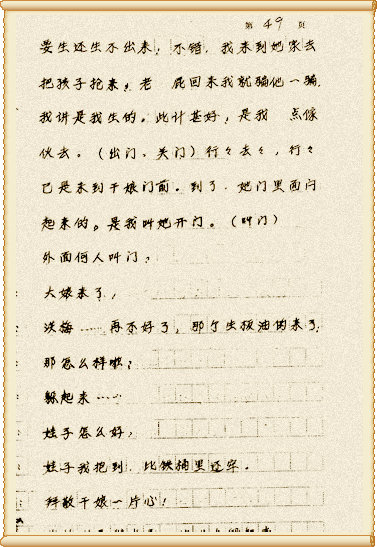 第 49 页
要生还生不出来，不错，我来到她家去
把孩子抱来，老 屁回来我就骗他一骗，
我讲是我生的。此计甚好，是我 点像
伙去。（出门、关门）行々去々，行々
已是来到干娘门前。到了，她门里面闩
起来的。是我叫她开门。（叫门）
外面何人叫门，
大娘来了，
淡梅……再不好了，那个生板油的来了，
那怎么样呢，
躲起来……
娃子怎么好，
娃子我把到 比铁桶里还牢。
拜敬干娘一片心！